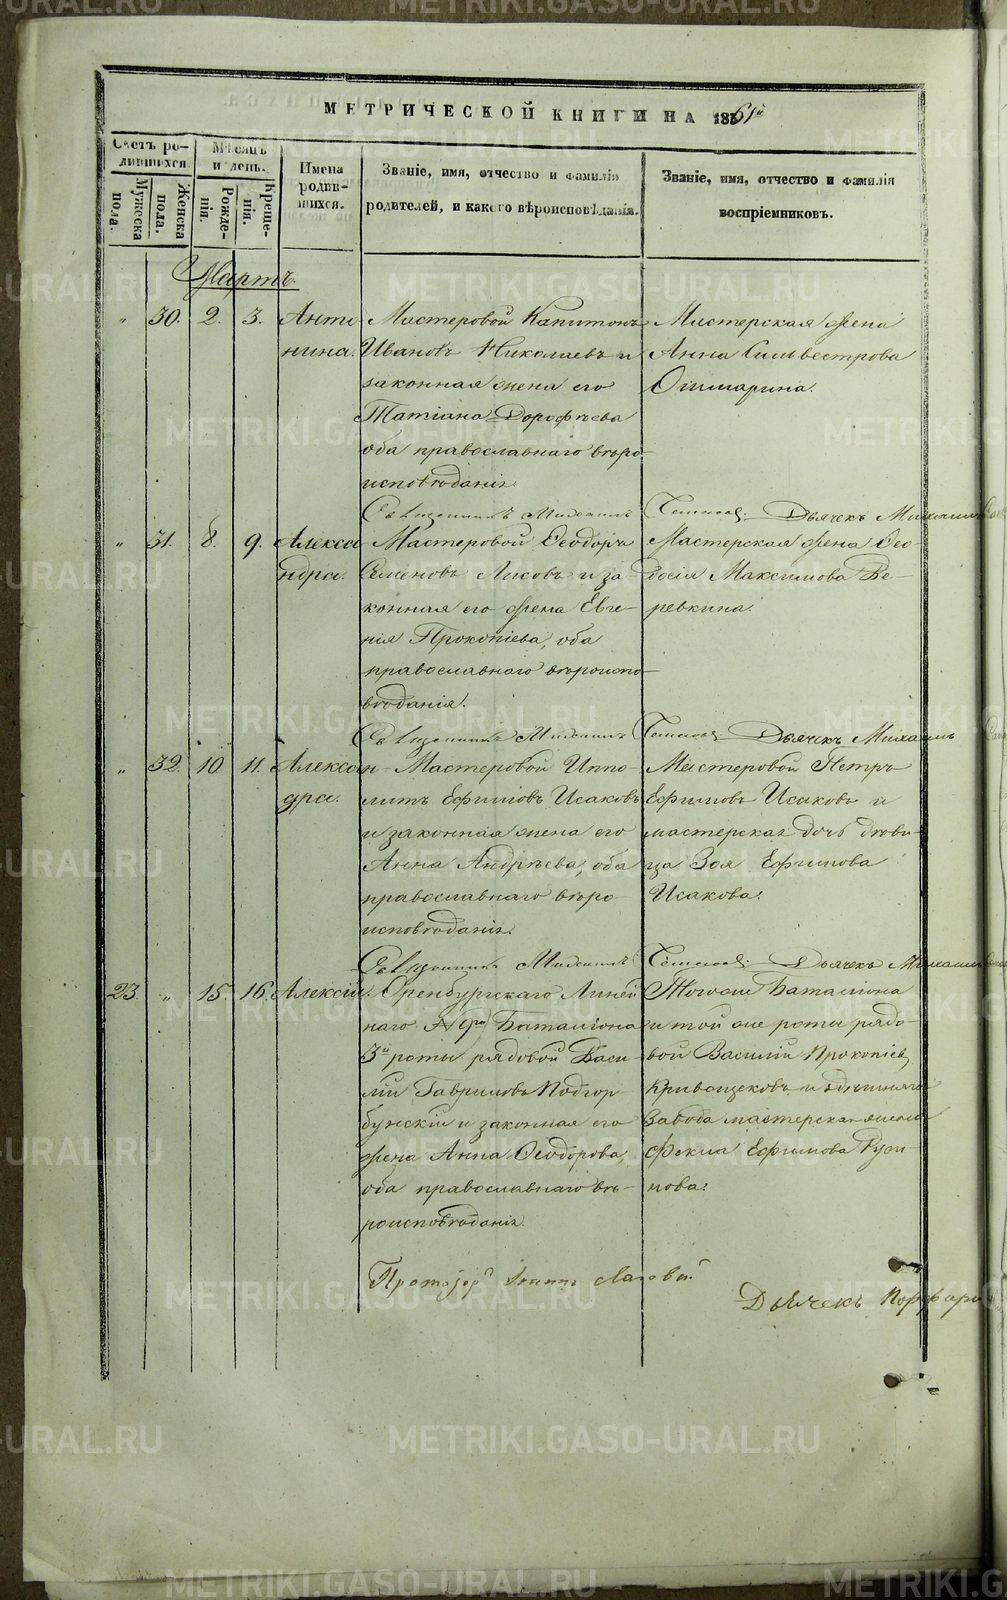 МЕТРИЧЕСКОЙ КНИГИ НА 1861й
Счетъ ро-
дившихся.
Мужеска пола.
Женска пола.
Мѣсяцъ
и день.
Рожде-
нія.
Креще-
нія.
Имена
родив-
шихся.
Званіе, имя, отчество и фамилія
родителей, и какого вѣроисповѣданія.
Званіе, имя, отчество и фамилія
воспріемниковъ.
Мартъ.
" 30. 2. 3. Анто
нина.
Мастеровой Капитонъ
Ивановъ Николаевъ и
законная жена его
Татіана Дорофѣева
оба православнаго вѣро-
исповѣданія.
Мастерская жена
Анна Сильвестрова
Священникъ Михаилъ
Дьячекъ Михаилъ
" 31. 8. 9. Алексан
ндра.
Мастеровой Ѳеодоръ
Семеновъ Лисовъ и за-
конная его жена Евге-
нія Прокопіева, оба
православнаго вѣроиспо-
вѣданія.
Мастерская жена Ѳео-
досія Максимова Ве-
ревкина.
Священникъ Михаилъ
Дьячекъ Михаилъ
" 32. 10. 11. Алексан
дра.
Мастеровой Иппо-
литъ Ефимовъ Исаковъ
и законная жена его
Анна Андрѣева, оба
православнаго вѣро-
исповѣданія.
Мастеровой Петръ
Ефимовъ Исаковъ и
мастерская дочь дѣви-
ца Зоя Ефимова
Исакова.
Священникъ Михаилъ
Дьячекъ Михаилъ
23. " 15. 16. Алексій.
Оренбургскаго Линей
наго Баталіона
3й роты рядовой Васи-
лій Гавриловъ Подгор
бунскій и законная его
жена Анна Ѳеодорова,
оба православнаго вѣ-
роисповѣданія.
Тогоже Баталіона
и той же роты рядо
вой Василій Прокопіевъ
Кривощековъ и здѣшняго
завода мастерская жена
Фекла Ефимова Руси-
нова.
Протоіерей
Дьячекъ
METRIKI.GASO-URAL.RU